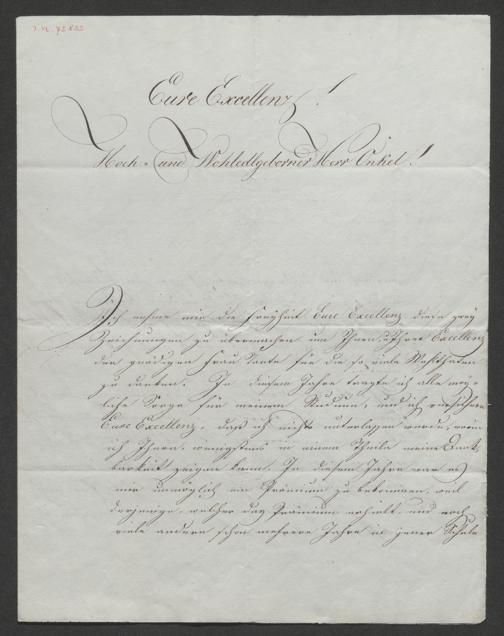 Eure Excellenz!
Hoch- und Wohledlgeborner Herr Onkel!
Ich nehme mir die Freyheit Eure Excellenz diese zwey
Zeichnungen zu übermachen um Ihnen u Ihrer Excellenz
der gnädigen Frau Tante für die so viele Wohlthaten
zu danken. In diesem Jahre tragte ich alle mög-
liche Sorge für meinem Studium, und ich versichere
Eure Excellenz, daß ich nichts unterlassen werde, worin
ich Ihnen wenigstens in einem Theile meine Dank-
barkeit zeigen kann. In diesem Jahre war es
mir unmöglich ein Prämium zu bekommen, weil
derjenige, welcher das Prämium erhielt und noch
viele andere schon mehrere Jahre in jener Schule